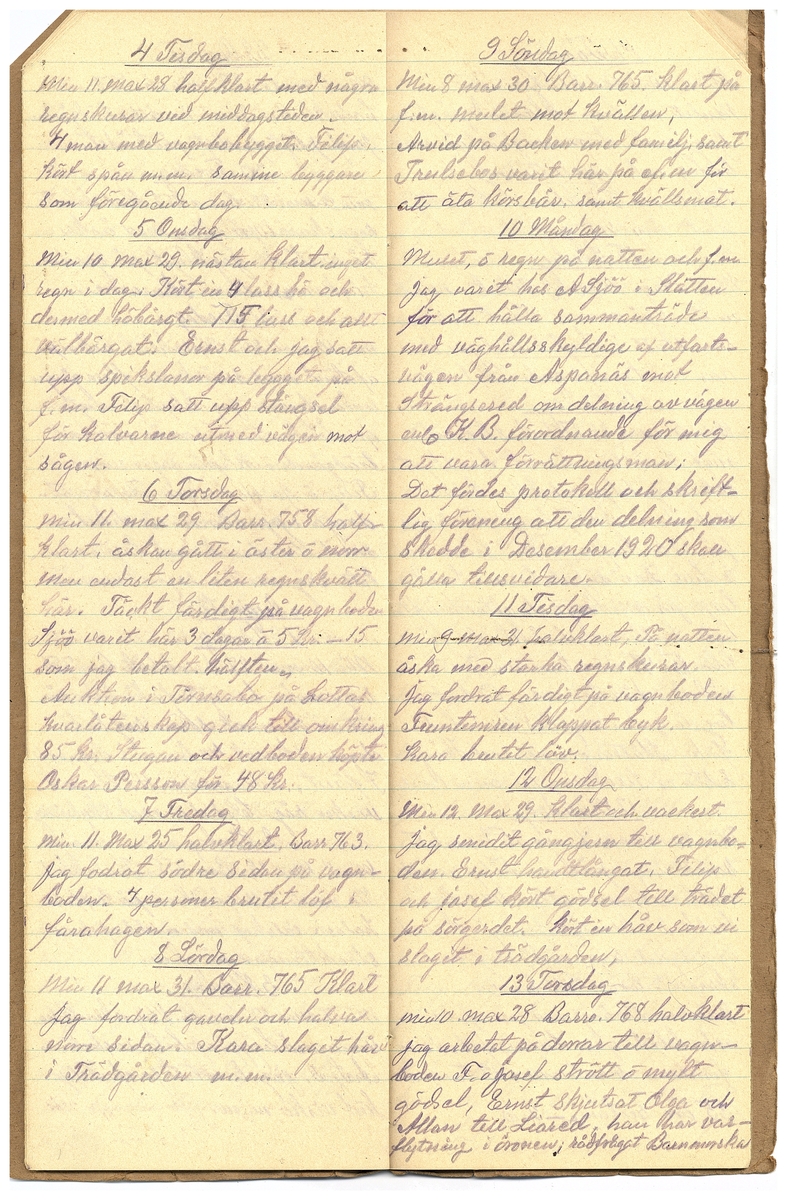 4 Tisdag
Min 11. max 28 halfklart med några
regnskurar ved middagstiden.
4 man med vagnbobygget. Filip
kört spån m.m. samme byggare
som föregående dag.
5 Onsdag
Min 10 max 29. nästan klart. inget
regn i dag. Kört in 4 lass hö och
dermed höbärgt. lass och allt
välbärgat. Ernst och jag satt
upp spikslanor på bygget på
f.m. Filip satt upp stängsel
för kalvarne utmed vägen mot
sågen.
6 Torsdag
min 11. max 29 Barr. 758 half-
klart, åskan gått i öster o norr
men endast en liten regnskvätt
här. Täckt färdigt på vagnboden
Sjöö varit här 3 dagar à 5 kr. — 15
som jag betalt hälften.
Auktion i Törnsabo på Lottas
kvarlåtenskap gick till omkring
85 kr. Stugan och vedboden köpte
Oskar Persson för 48 kr.
7 Fredag
min 11. Max 25 halvklart. Barr 763.
jag fodrat södre sidan på vagn-
boden. 4 personer brutit löf i
fårahagen.
8 Lördag
Min 11 max 31. Barr. 765 Klart
Jag fordrat gaveln och halva
norr sidan. Kara slaget håv
i Trädgården m.m.
9 Söndag
Min 8 max 30 Barr. 765. klart på
f.m. mulet mot kvällen,
Arvid på Backen med familj, samt
Trulsebos varit här på efm för
att äta körsbär, samt kvällsmat.
10 Måndag
Mulet, o regn på natten och f.m
Jag varit hos A Sjöö i Slätten
för att hålla sammanträde
med väghållsskyldige af utfarts-
vägen från Aspanäs mot
Strängsered om delning av vägen
enl K.B. förordnande för mig
att vara förrättningsman;
Det fördes protokoll och skrift-
lig förening att den delning som
skedde i Desember 1920 skall
gälla tillsvidare.
11 Tisdag
min 9 max 21 halvklart, På natten
åska med starka regnskurar.
Jag fordrat färdigt på vagnboden
Fruntimren klappat byk.
Kara brutit löv.
12 Onsdag
Min 12. Max 29. klart och vackert.
Jag smidit gångjern till vagnbo-
den. Ernst handtlangat. Filip
och josef kört gödsel till trädet
på sörgerdet. Kört in håv som vi
slaget i trädgården,
13 Torsdag
min 10. max 28 Barro. 768 halvklart
jag arbetat på dörrar till vagn-
boden F. o josef strött o mylt
gödsel, Ernst skjutsat Olga och
Allan till Liared, han har var-
flytning i öronen; rådfrågat Barnmorska